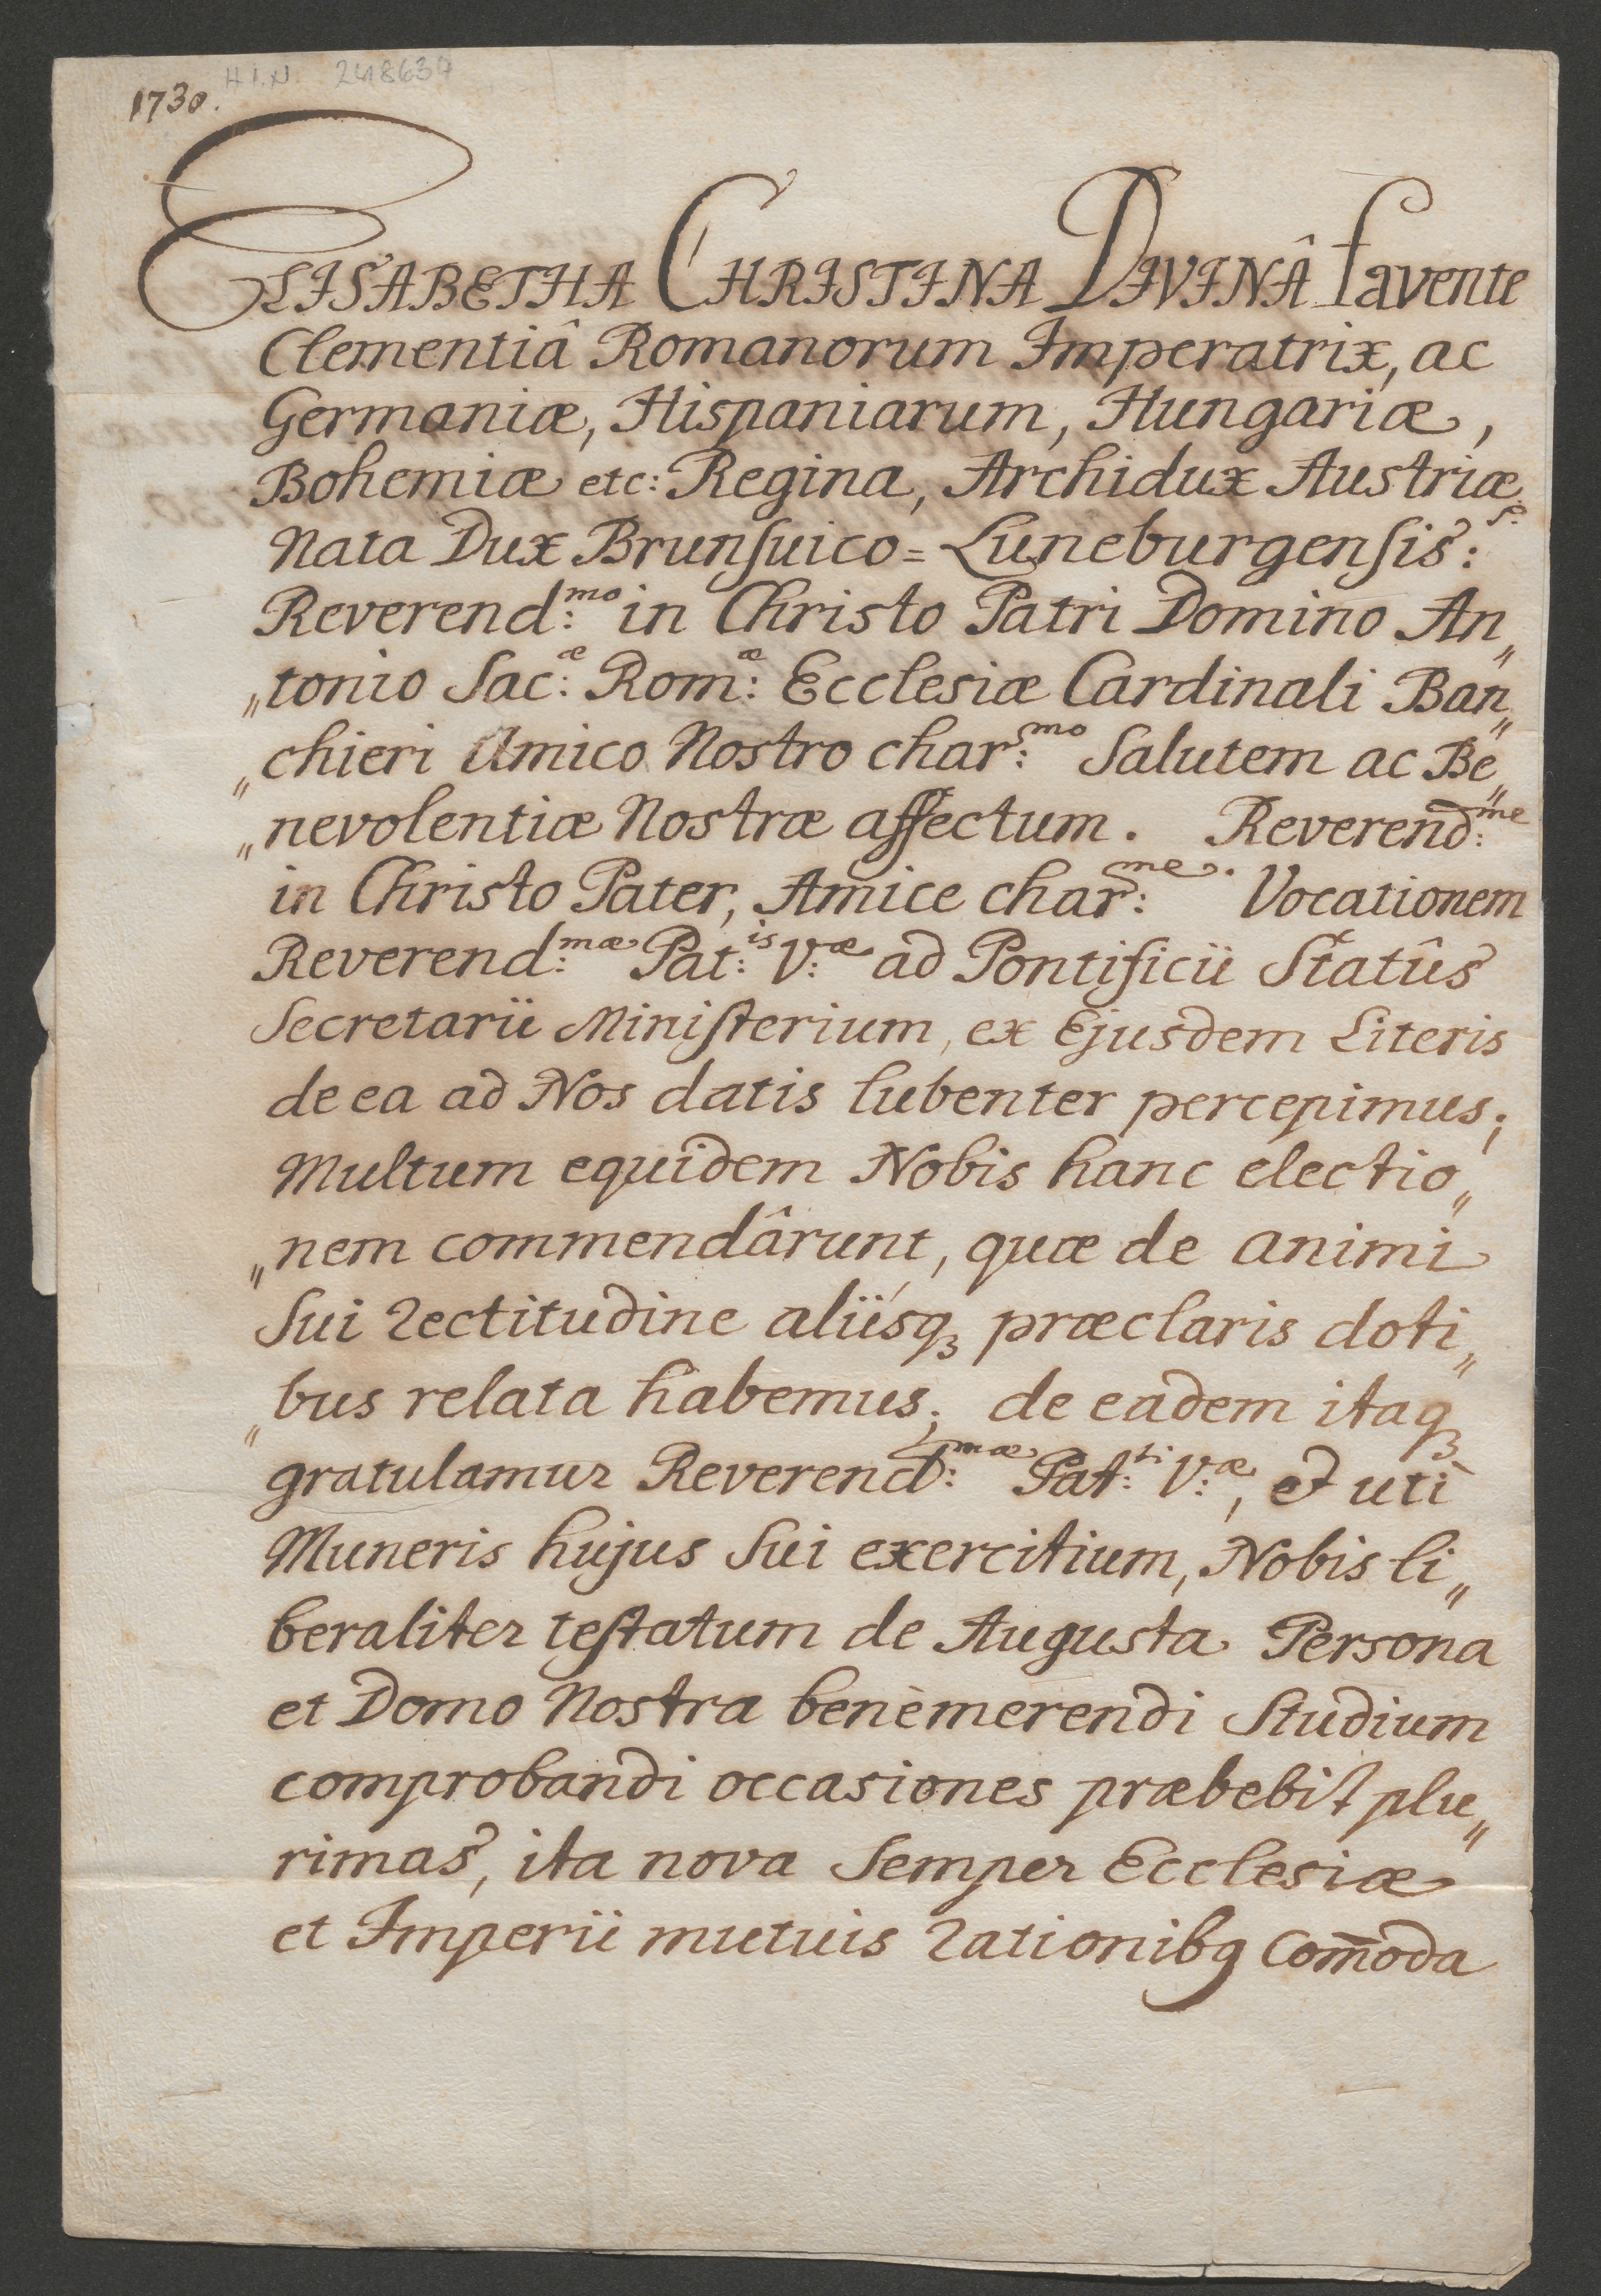 1730. H.I.N. 248637
ELISABETHA CHRISTINA DIVINÂ favente
Clementiâ Romanorum Imperatrix, ac
Germaniæ, Hispaniarum, Hungariæ,
Bohemiæ etc: Regina, Archidux Austriæ
Nata Dux Brunsuico=Luneburgensis:
Reverend:mo in Christo Patri Domino An„
„tonio Sac:æ Rom:æ Ecclesiæ Cardinali Ban„
„chieri Amico Nostro char:mo Salutem ac Be„
„nevolentiæ Nostræ affectum. Reverend:me
in Christo Pater, Amice char:me. Vocationem
Reverend:mæ Pat:is V:æ ad Pontificii Statûs
Secretarii Ministerium, ex Ejusdem Literis
de ea ad Nos datis lubenter percepimus;
Multum equidem Nobis hanc electio„
„nem commendârunt, quæ de animi
Sui rectitudine aliisq3 præclaris doti„
„bus relata habemus; de eadem itaq3
gratulamur Reverend:mæ Pat:ti V:æ, et uti
Muneris hujus Sui exercitium, Nobis li„
beraliter testatum de Augusta Persona
et Domo Nostra benèmerendi Studium
comprobandi occasiones præbebit plu„
rimas, ita nova Semper Ecclesiæ
et Imperii mutuis rationibq Com̄oda